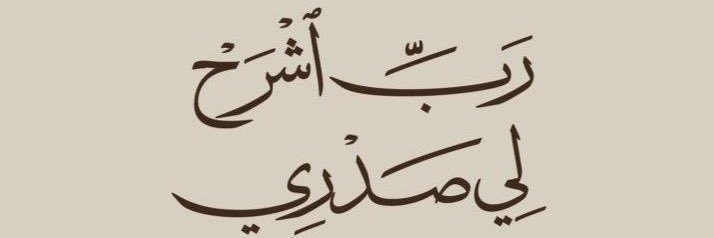 رَبِّ ٱشْرَحْ
لِي صَدْرِي